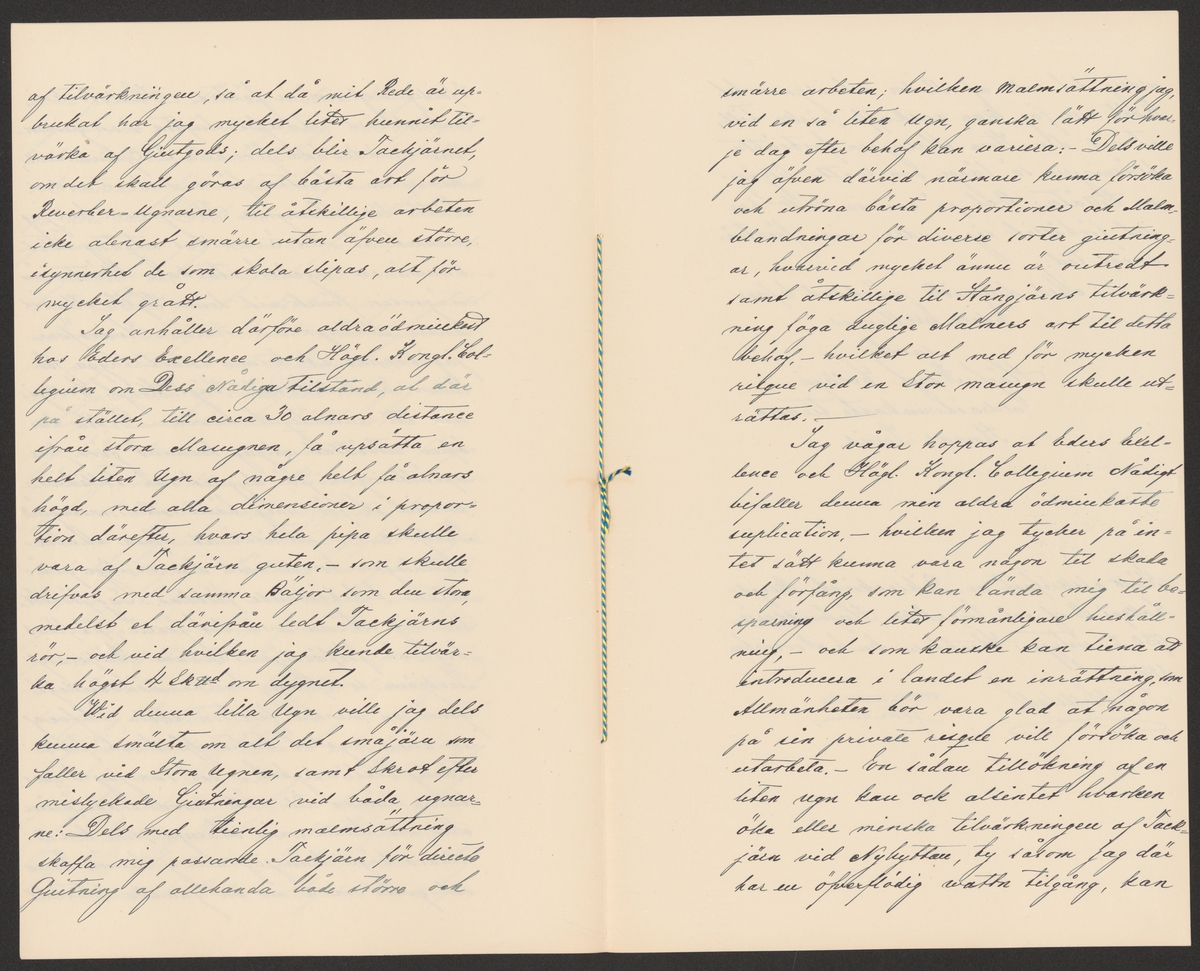 af tilvärkningen, så at då mit Rede är up-
brukat har jag mycket litet hunnit til-
värka af Gjutgods; dels blir Tackjärnet,
om det skall göras af bästa art för
Reverber-Ugnarne, til åtskillige arbeten
icke alenast smärre utan äfven större,
isynnerhet de som skola slipas, alt för
mycket grått.
Jag anhåller därföre aldraödmiukast
hos Eders Excellence och Högl. Kongl. Col-
legium om Dess Nådiga tilstånd, at där
på stället, till circa 30 alnars distance
ifrån stora Masugnen, få upsätta en
helt liten Ugn af någre helt få alnars
högd, med alla dimensioner i propor-
tion därefter, hvars hela pipa skulle
vara af Tackjärn guten, – som skulle
drifvas med samma Bäljor som den stora,
medelst et däripån ledt Tackjärns
rör, – och vid hvilken jag kunde tilvär-
ka högst 4 Skud om dygnet.
Wid denna lilla Ugn ville jag dels
kunna smälta om alt det småjärn som
faller vid Stora Ugnen, samt Skrot efter
mislyckade Giutningar vid båda ugnar-
ne: Dels med tienlig malmsättning
skaffa mig passande Tackjärn för directe
Giutning af allehanda både större och
smärre arbeten; hvilken Malmsättning jag,
vid en så liten Ugn, ganska lätt för hvar-
je dag efter behof kan variera: – Dels ville
jag äfven därvid närmare kunna försöka
och utröna bästa proportioner och Malm-
blandningar för diverse sorter giutning-
ar, hvarvid mycket ännu är outredt
samt åtskillige til Stångjärns tilvärk-
ning föga duglige Malmers art til detta
behof, – hvilket alt med för mycken
risque vid en Stor masugn skulle ut-
rättas. –
Jag vågar hoppas at Eders Exel-
lence och Högl. Kongl. Collegium Nådigt
bifaller denna min aldra ödmiukaste
suplication, – hvilken jag tycker på in-
tet sätt kunna vara någon til skada
och förfång, som kan lända mig til be-
sparning och litet förmånligare hushåll-
ning, – och som kanske kan tiena att
introducera i landet en inrättning, som
Allmänheten bör vara glad at någon
på sin private risque vill försöka och
utarbeta. – En sådan tillökning af en
liten Ugn kan ock alsintet hvarken
öka eller minska tilvärkningen af Tack-
järn vid Nyhyttan, ty såsom jag där
har en öfverflödig wattn tilgång, kan